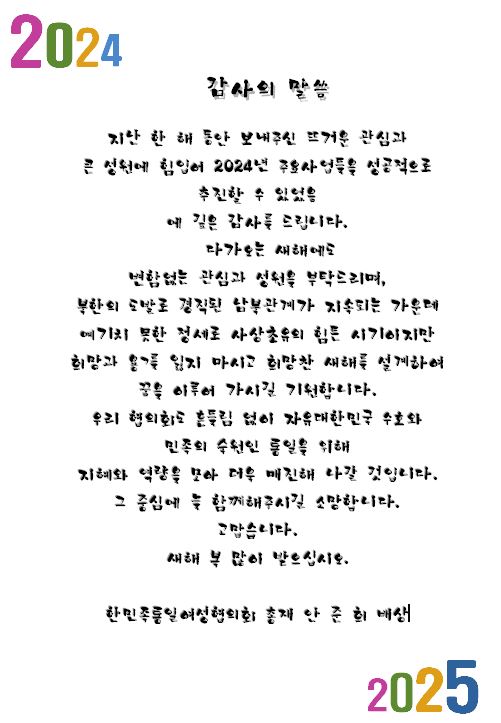 2024
감사의 말씀
지난 한 해 동안 보내주신 뜨거운 관심과
큰 성원에 힘입어 2024년 주요사업들을 성공적으로
추진할 수 있었음
에 깊은 감사를 드립니다.
다가오는 새해에도
변함없는 관심과 성원을 부탁드리며,
북한의 도발로 경직된 남북관계가 지속되는 가운데
예기치 못한 정세로 사상초유의 힘든 시기이지만
희망과 용기를 잃지 마시고 희망찬 새해를 설계하여
꿈을 이루어 가시길 기원합니다.
우리 협의회도 흔들림 없이 자유대한민국 수호와
민족의 숙원인 통일을 위해
지혜와 역량을 모아 더욱 매진해 나갈 것입니다.
그 중심에 늘 함께해주시길 소망합니다.
고맙습니다.
새해 복 많이 받으십시오.
한민족통일여성협의회 총재 안 준 희 배상
2025